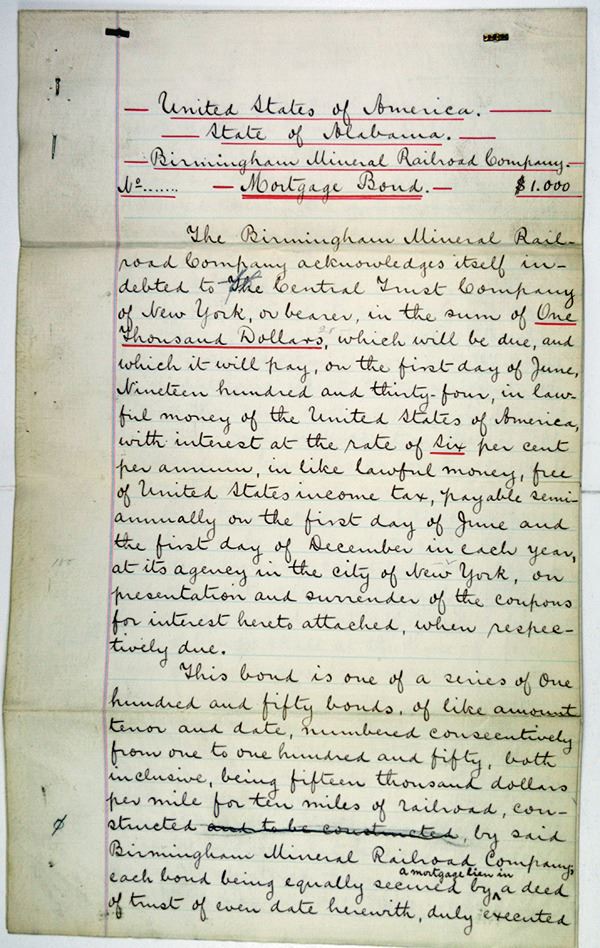 United States of America.
State of Alabama.
Birmingham Mineral Railroad Company.
No....... Mortgage Bond. $1.000
The Birmingham Mineral Rail-
road Company acknowledges itself in-
debted to The Central Trust Company
of New York, or bearer, in the sum of One
Thousand Dollars, which will be due, and
which it will pay, on the first day of June,
Nineteen hundred and thirty-four, in law-
ful money of the United States of America,
with interest at the rate of six per cent
per annum, in like lawful money, free
of United States income tax, payable semi-
annually on the first day of June and
the first day of December in each year,
at its agency in the city of New York, on
presentation and surrender of the coupons
for interest hereto attached, when respec-
tively due.
This bond is one of a series of One
hundred and fifty bonds, of like amount
tenor and date, numbered consecutively
from one to one hundred and fifty, both
inclusive, being fifteen thousand dollars
per mile for ten miles of railroad, con-
structed and to be constructed, by said
Birmingham Mineral Railroad Company,
each bond being equally secured by a mortgage lien in a deed
of trust of even date herewith, duly executed